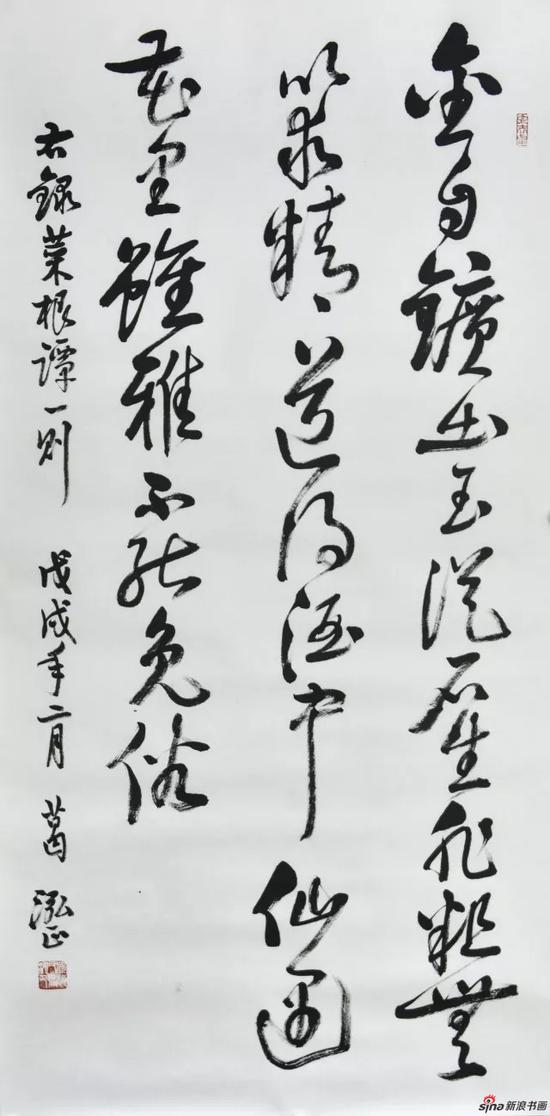 金自鑛出玉從石生非粗無
以求精道得酒中仙遇
花里雖雅不能免俗
右録菜根谭一则 戊戌年二月 葛泓正
sina新浪书画